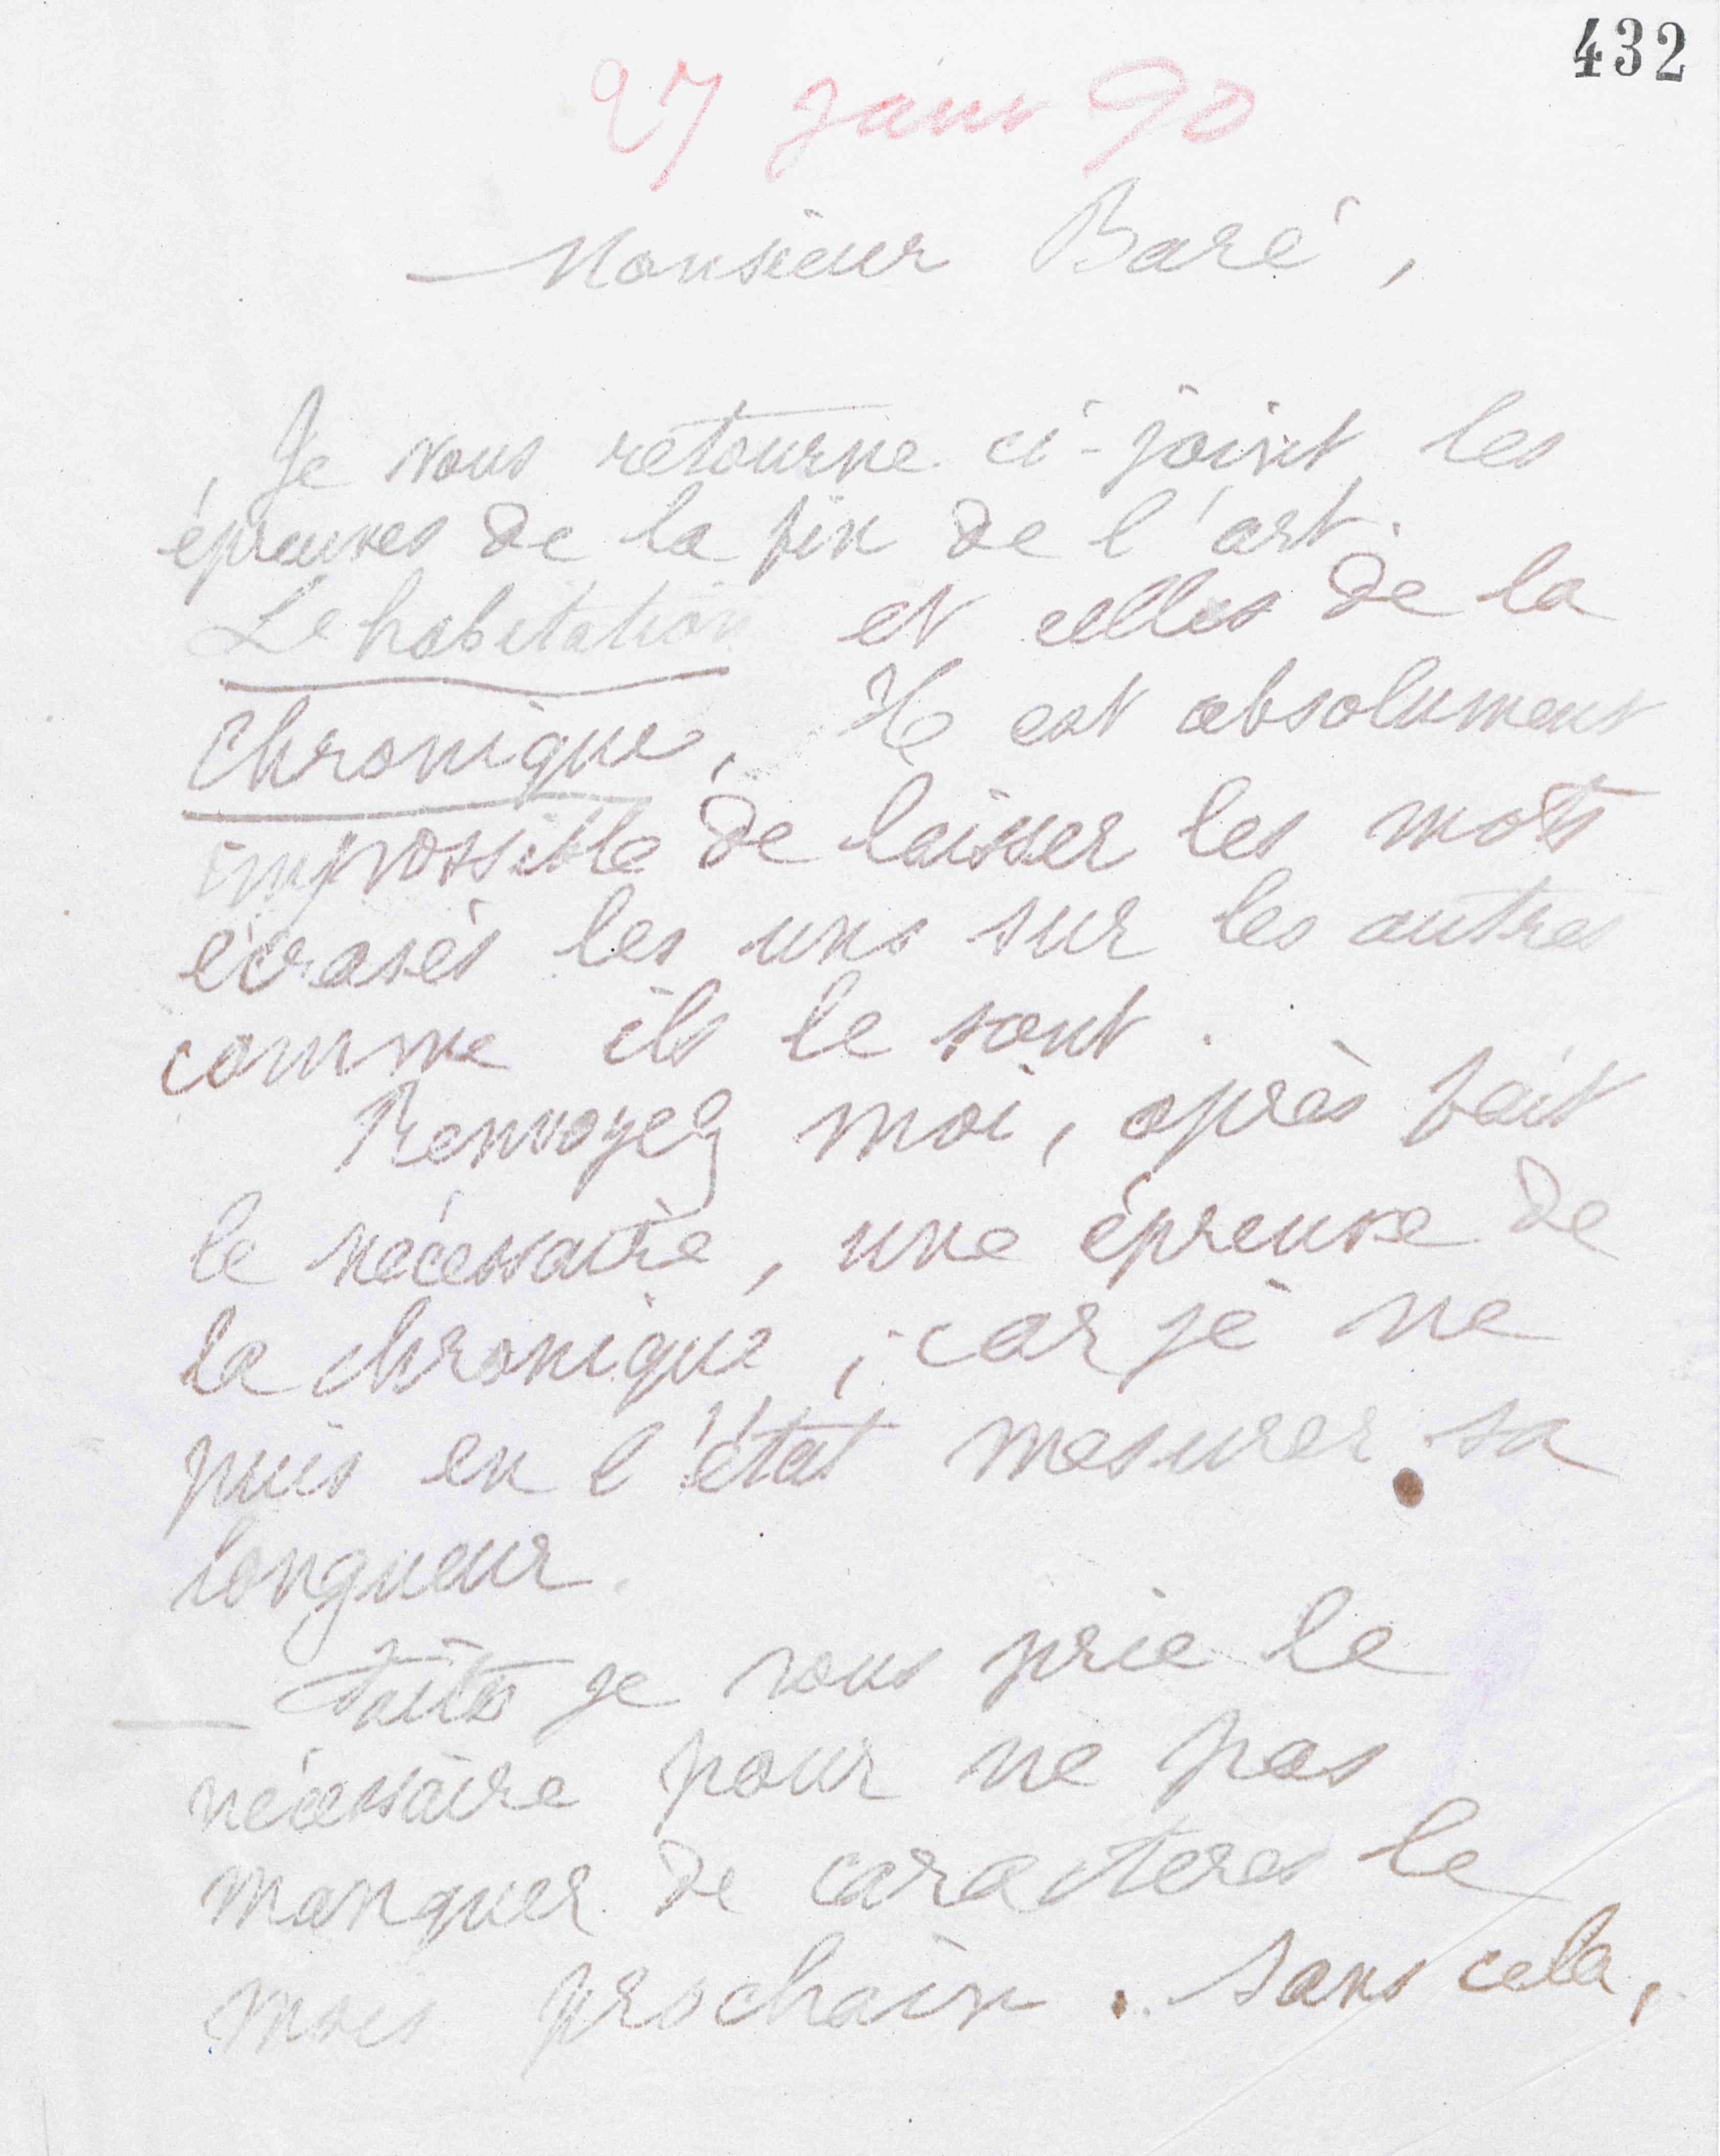 432
27 janv 90
Monsieur Baré,
Je vous retourne ci-joint les
épreuves de la fin de l'art.
Le habitation et celles de la
chronique. Il est absolument
impossible de laisser les mots
écrasés les uns sur les autres
comme ils le sont.
Renvoyez moi, après fait
le nécessaire, une épreuve de
la chronique ; car je ne
puis en l'état mesurer sa
longueur.
Faites je vous prie le
nécessaire pour ne pas
manquer de caractères le
mois prochain. Sans cela,